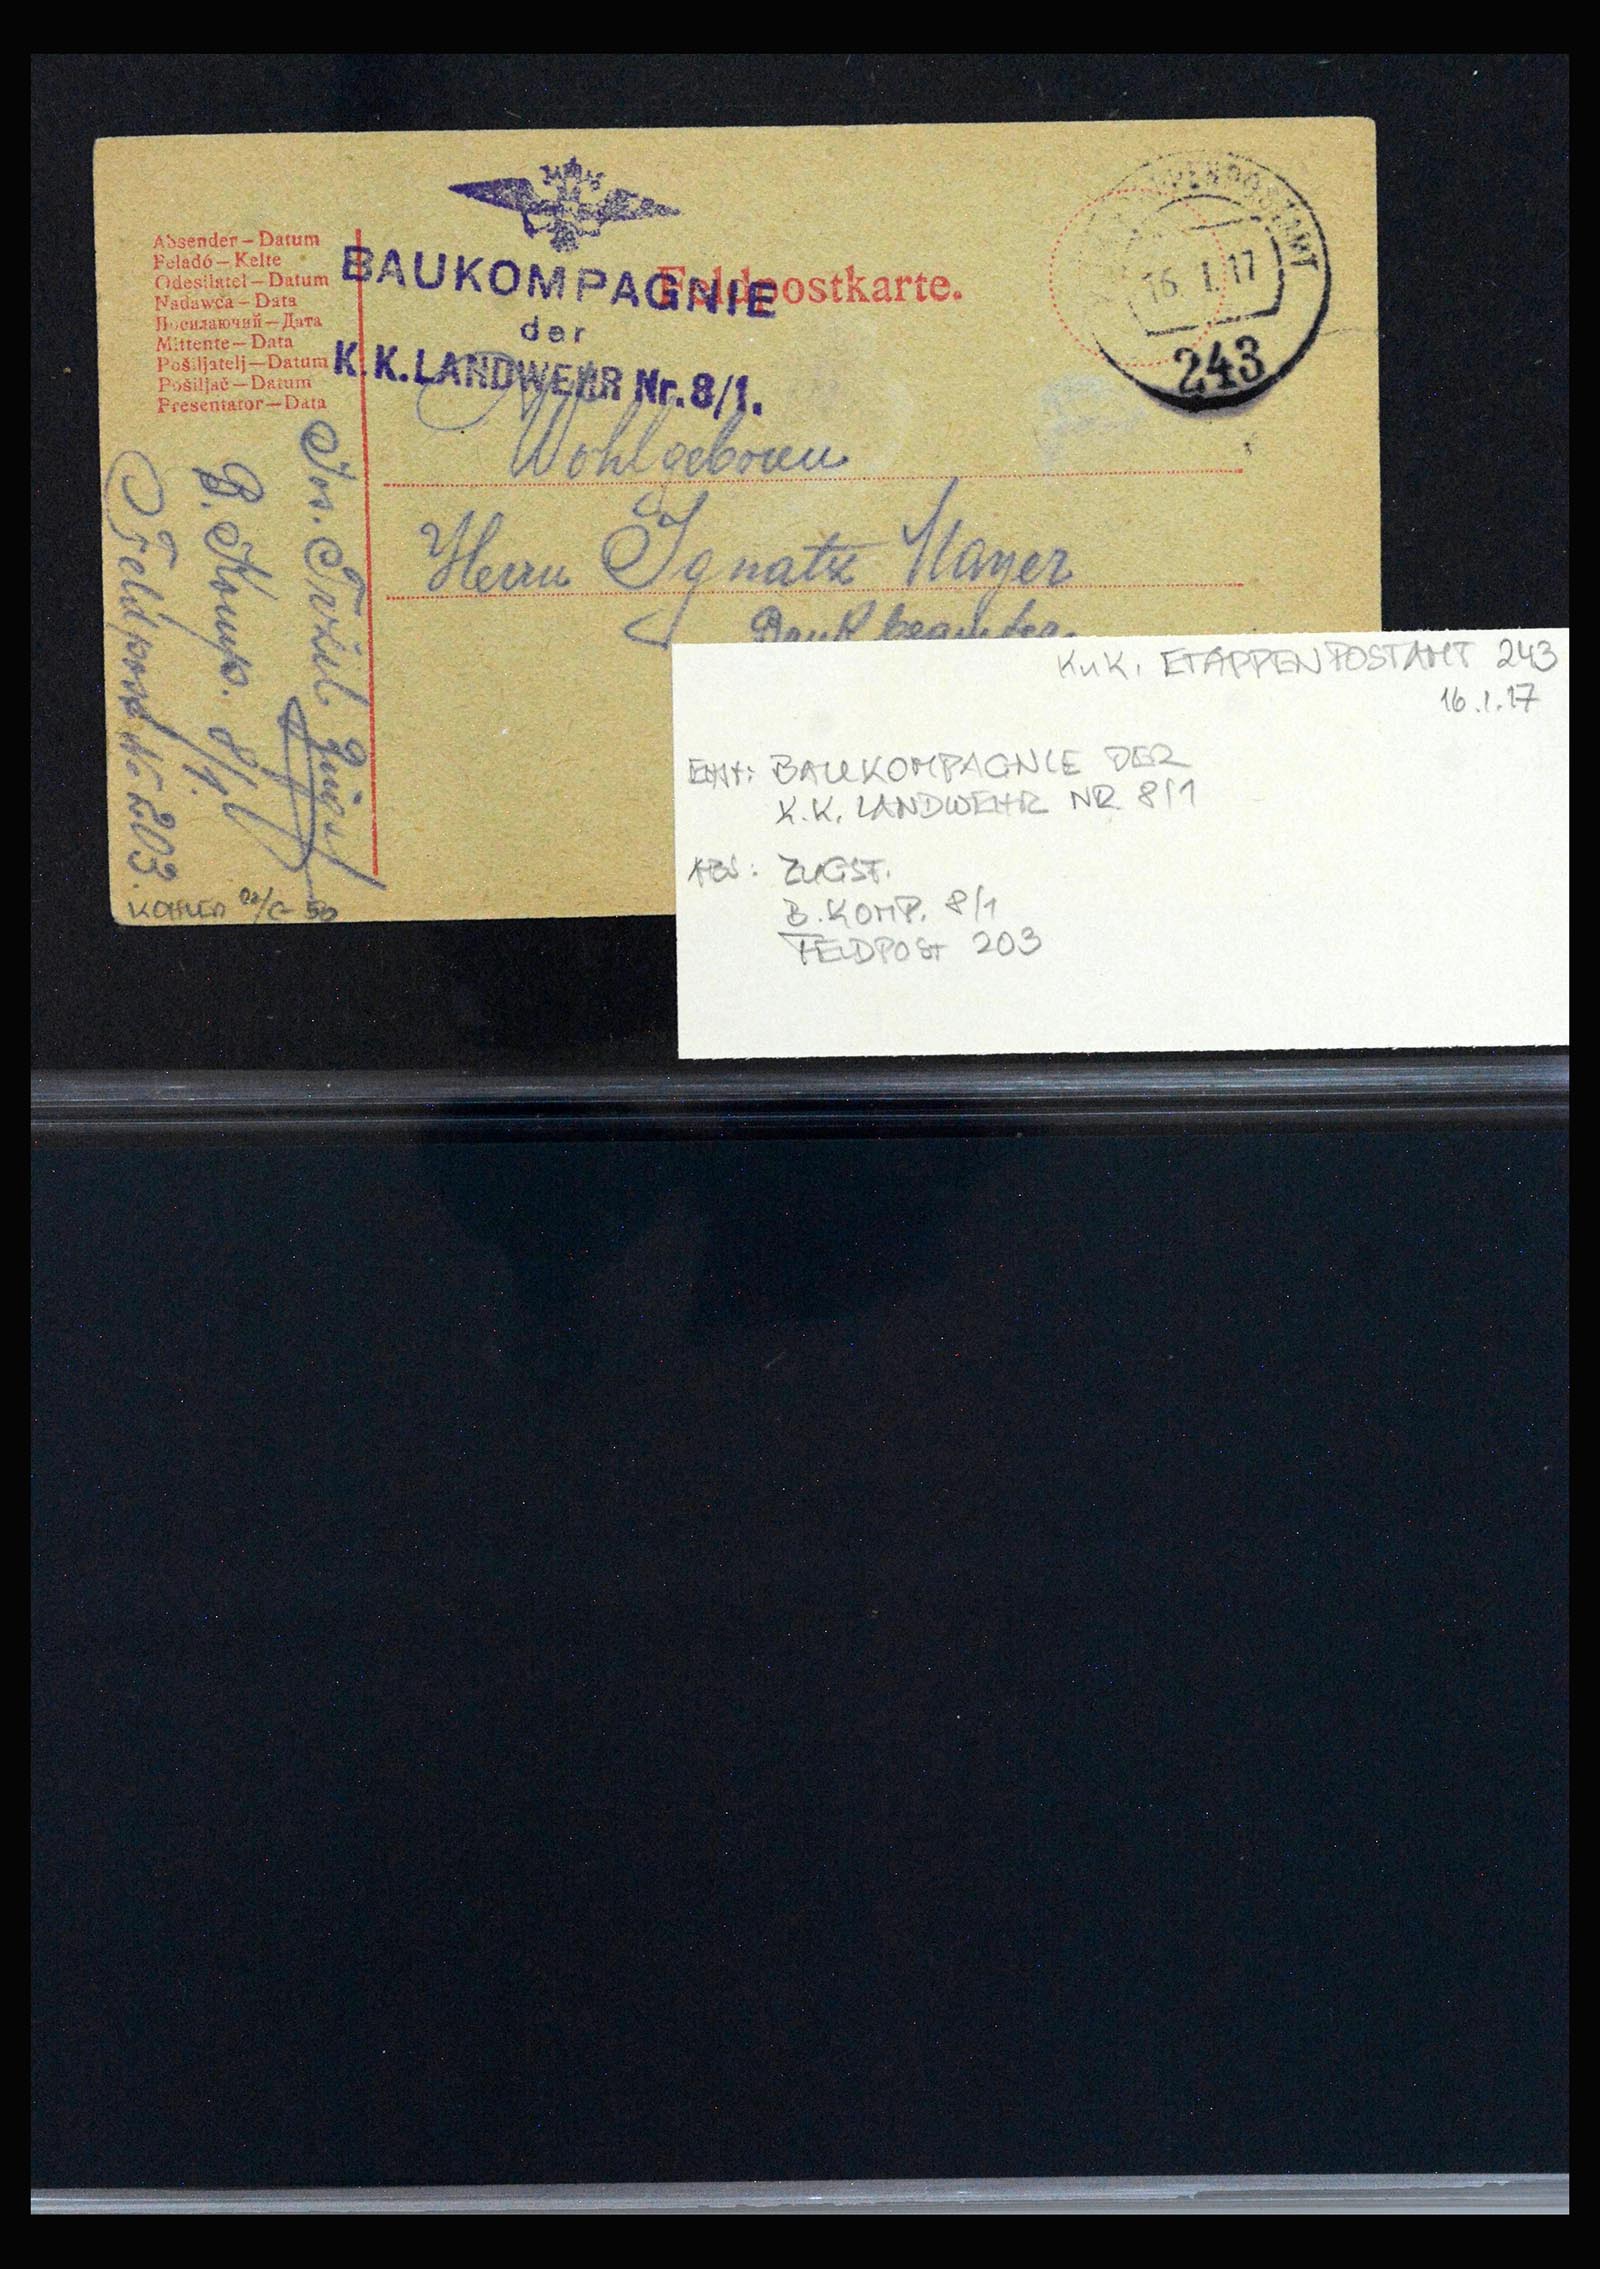 BAUKOMPAGNIE
der
K.K.LANDWEHR Nr.8/1.
Feldpostkarte.
16.I.17
243
Absender – Datum
Feladó – Kelte
Odesílatel – Datum
Nadawca – Data
Посилаючий – Дата
Mittente – Data
Pošiljatelj – Datum
Pošiljač – Datum
Presentator – Data
Wohlgeboren
Herrn Ignatz Mayer
Bankbeamter
B. Komp. 8/1.
Feldpost No 203.
K.u.K. ETAPPENPOSTAMT 243
16.I.17
BAUKOMPAGNIE DER
K.K. LANDWEHR NR 8/1
ABS: ZUGST.
B.KOMP. 8/1
FELDPOST 203